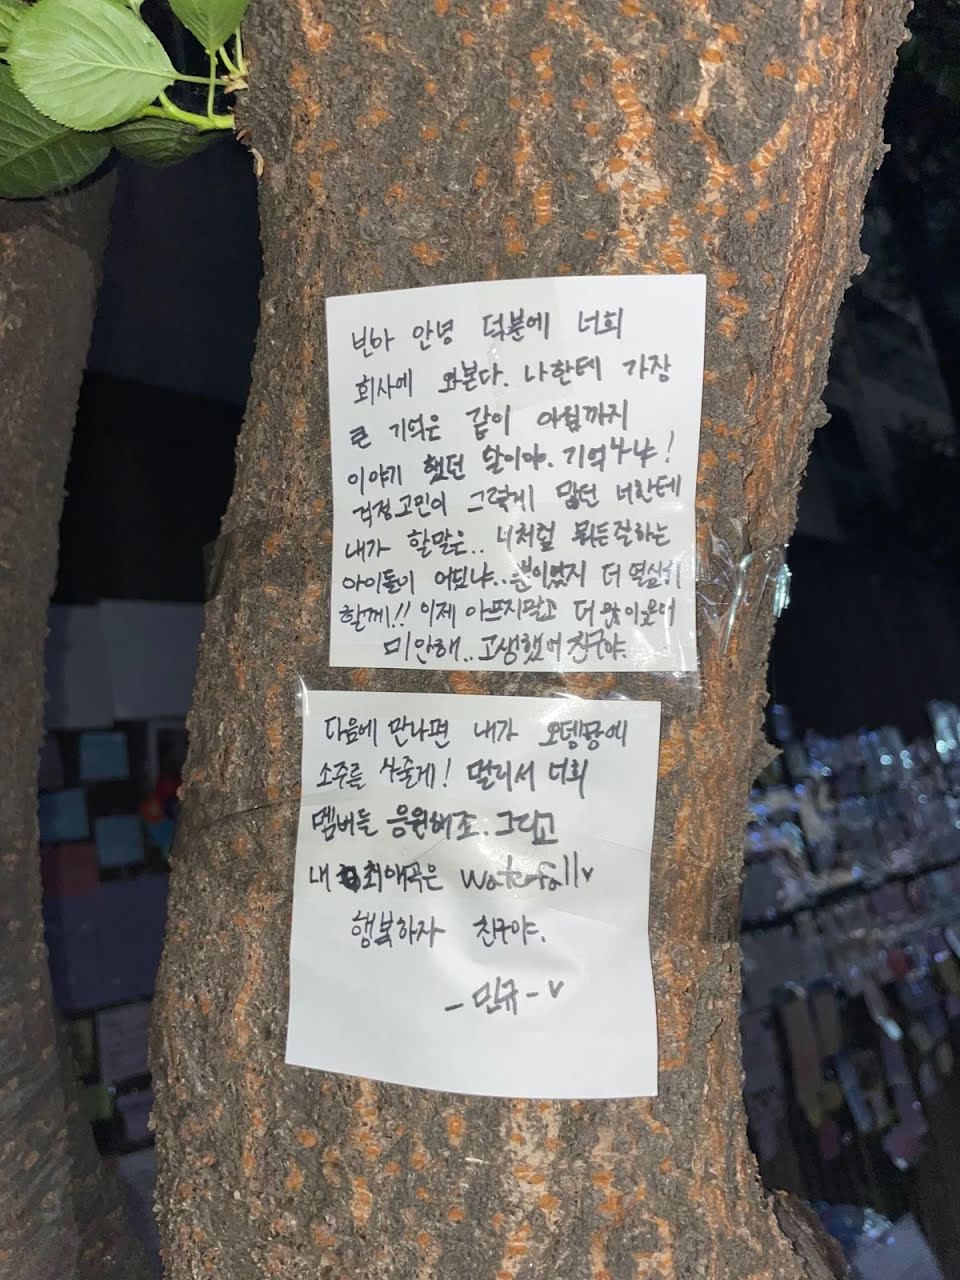 빈아 안녕 덕분에 너희
회사에 와본다. 나한테 가장
큰 기억은 같이 아침까지
이야기 했던 날이야. 기억나냐!
걱정고민이 그렇게 많던 너한테
내가 할말은.. 너처럼 뭐든잘하는
아이돌이 어딨냐.. 뿐이었지 더 열심히
할께!! 이제 아프지말고 더 많이웃어
미안해.. 고생했어 친구야.
다음에 만나면 내가 오뎅탕에
소주를 사줄게! 멀리서 너희
멤버들 응원해줘. 그리고
내 최애곡은 waterfall♥
행복하자 친구야.
- 민규 - ♥